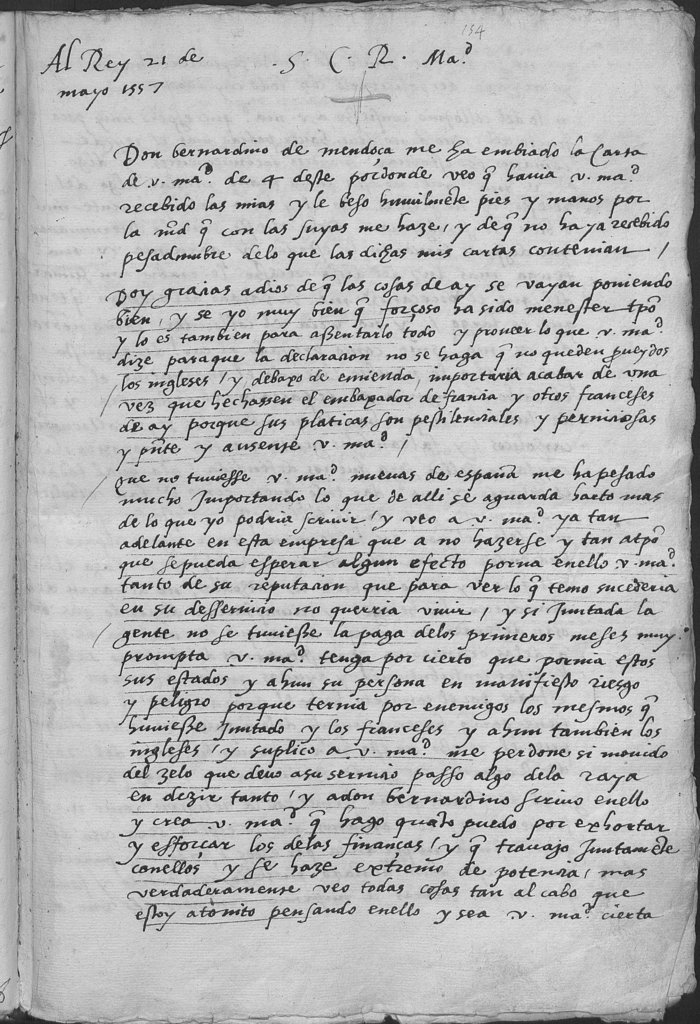 154
Al Rey 21 de
mayo 1557
. S . C . R . Ma.d
Don bernardino de mendoça me ha embiado la Carta
de v. ma.d de 4 deste por donde veo q̃ havia v. ma.d
recebido las mias y le beso humilmẽte pies y manos por
la m̃d q̃ con las suyas me haze / y de q̃ no haya recebido
pesadumbre de lo que las dichas mis cartas contenian /
Doy gracias a dios de q̃ las cosas de ay se vayan poniendo
bien / y se yo muy bien q̃ forçoso ha sido menester tp̃o
y lo es tambien para assentarlo todo y proveer lo que v. ma.d
dize para que la declaracion no se haga q̃ no queden p̃ueydos
los ingleses / y debaxo de emienda, importaria acabar de una
vez que hechassen el embaxador de francia y otros franceses
de ay porque sus platicas son pestilenciales y perniciosas
y p̃nte y ausente v. ma.d /
que no tuviesse v. ma.d nuevas de españa me ha pesado
mucho Importando lo que de alli se aguarda harto mas
de lo que yo podria scrivir / y veo a v. ma.d ya tan
adelante en esta empresa que a no hazerse y tan a tp̃o
que se pueda esperar algun efecto porna en ello v. ma.d
tanto de su reputacion que para ver lo q̃ temo sucederia
en su desservicio no querria vivir / y si Juntada la
gente no se tuviesse la paga de los primeros meses muy
prompta v. ma.d tenga por cierto que pornia estos
sus estados y ahun su persona en manifiesto riesgo
y peligro porque ternia por enemigos los mesmos q̃
huviesse Juntado y los franceses y ahun tambien los
ingleses / y suplico a v. ma.d me perdone si movido
del zelo que devo a su servicio passo algo de la raya
en dezir tanto / y a don bernardino scrivo en ello
y crea v. ma.d q̃ hago quãto puedo por exhortar
y esforçar los de las finanças / y q̃ travajo Juntamẽte
con ellos y se haze extremo de potencia / mas
verdaderamente veo todas cosas tan al cabo que
estoy atonito pensando en ello y sea v. ma.d cierta